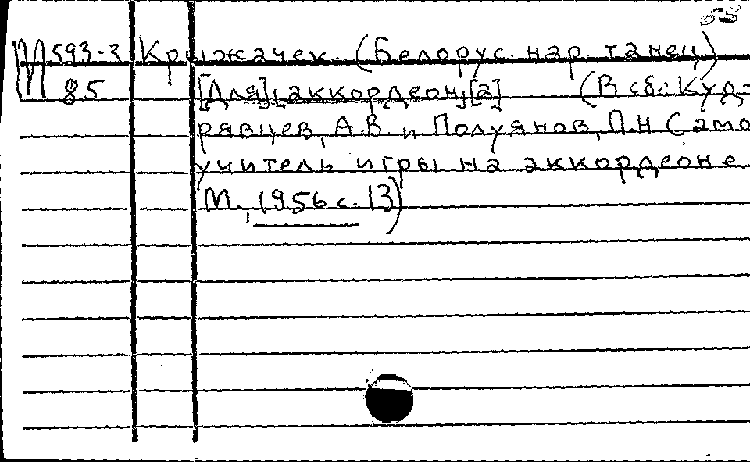 М 593-3 Крыжачек. (Белорус. нар. танец)
85 [Для] аккордеон[а] (В сб.: Куд-
рявцев, А.В. и Полуянов, П.Н. Само
учитель игры на аккордеоне
М., 1956 с. 13)